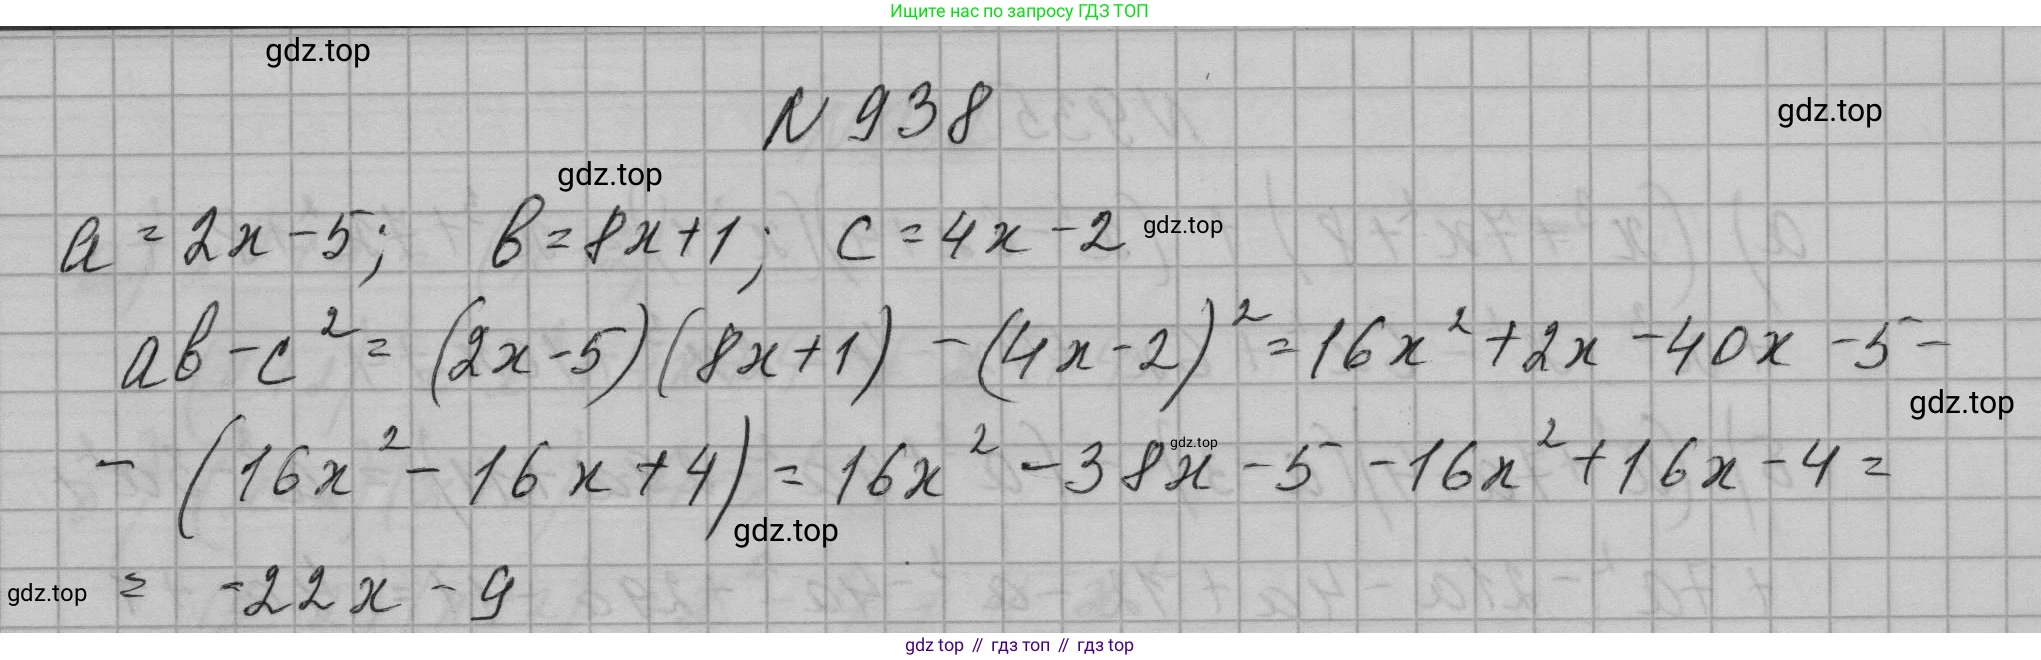 Ищите нас по запросу ГДЗ ТОП
gdz.top
N 938
gdz.top
gdz.top
a = 2x - 5; b = 8x + 1; c = 4x - 2 gdz.top
ab - c² = (2x - 5)(8x + 1) - (4x - 2)² = 16x² + 2x - 40x - 5 -
gdz.top
- (16x² - 16x + 4) = 16x² - 38x - 5 - 16x² + 16x - 4 =
gdz.top
gdz.top
gdz.top = -22x - 9
gdz top // гдз топ // гдз top